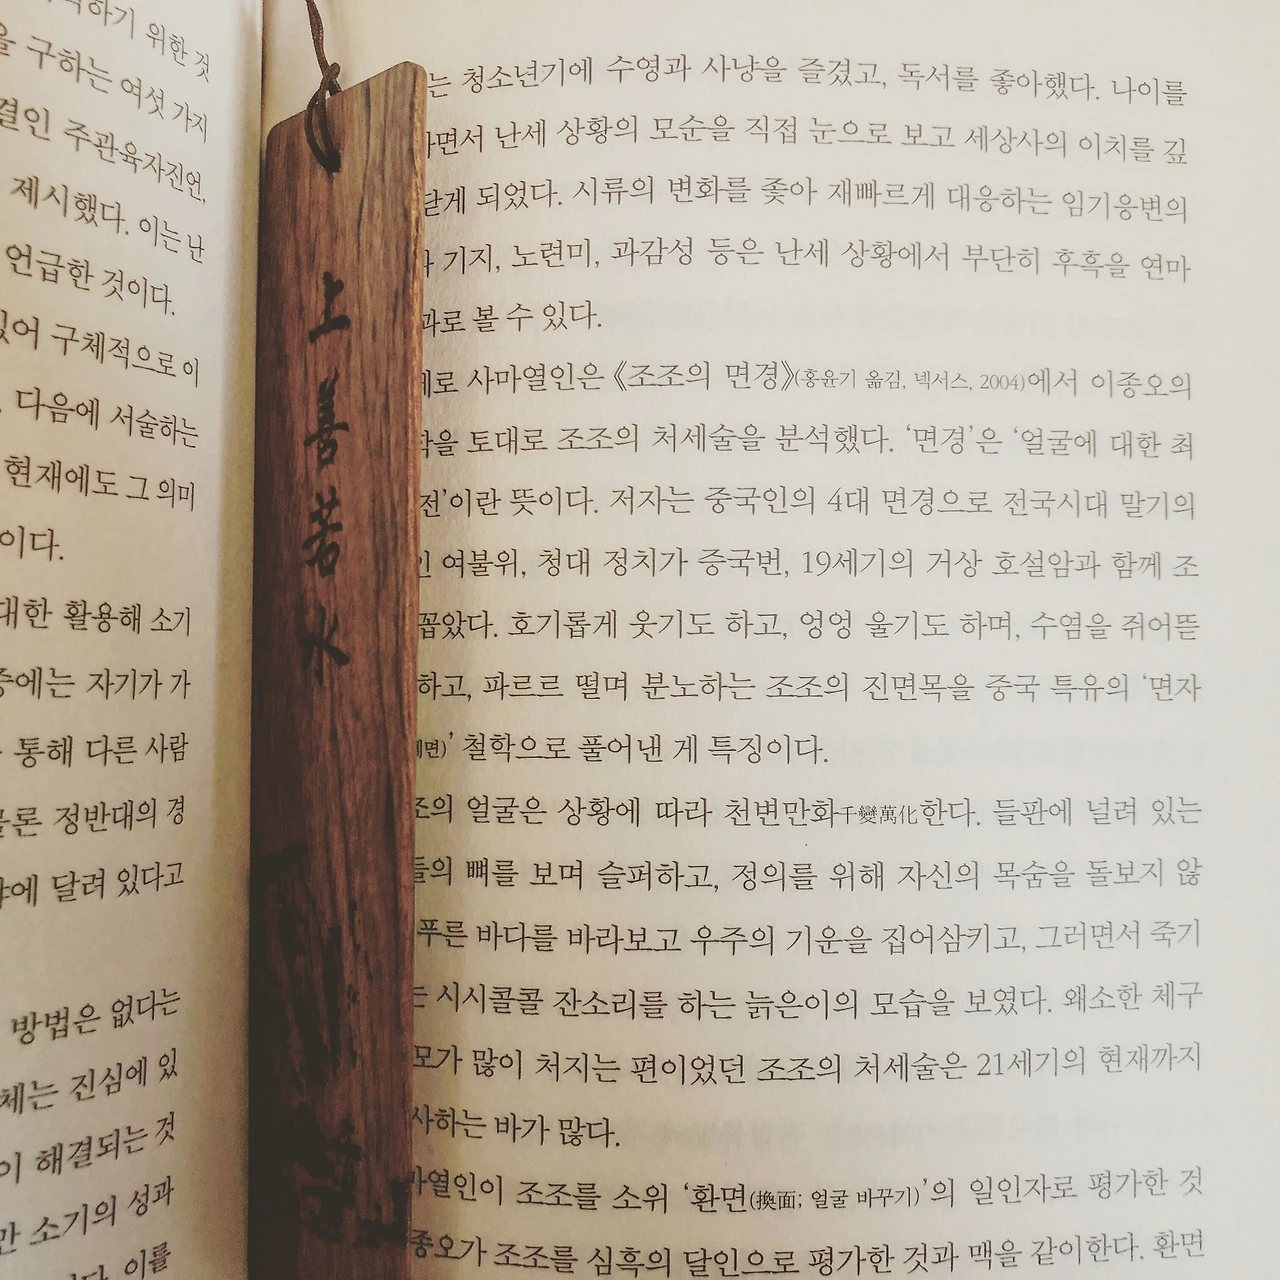 하기 위한 것
을 구하는 여섯 가지
결인 주관육자진언,
제시했다. 이는 난
언급한 것이다.
있어 구체적으로 이
다음에 서술하는
현재에도 그 의미
이다.
대한 활용해 소기
중에는 자기가 가
통해 다른 사람
물론 정반대의 경
달려 있다고
방법은 없다는
체는 진심에 있
이 해결되는 것
만 소기의 성과
이를
上善若水
는 청소년기에 수영과 사냥을 즐겼고, 독서를 좋아했다. 나이를
면서 난세 상황의 모순을 직접 눈으로 보고 세상사의 이치를 깊
닫게 되었다. 시류의 변화를 좇아 재빠르게 대응하는 임기응변의
기지, 노련미, 과감성 등은 난세 상황에서 부단히 후흑을 연마
과로 볼 수 있다.
로 사마열인은 《조조의 면경》(홍윤기 옮김, 넥서스, 2004)에서 이종오의
학을 토대로 조조의 처세술을 분석했다. ‘면경’은 ‘얼굴에 대한 최
전’이란 뜻이다. 저자는 중국인의 4대 면경으로 전국시대 말기의
인 여불위, 청대 정치가 증국번, 19세기의 거상 호설암과 함께 조
꼽았다. 호기롭게 웃기도 하고, 엉엉 울기도 하며, 수염을 쥐어뜯
하고, 파르르 떨며 분노하는 조조의 진면목을 중국 특유의 ‘면자
면)’ 철학으로 풀어낸 게 특징이다.
조의 얼굴은 상황에 따라 천변만화千變萬化한다. 들판에 널려 있는
들의 뼈를 보며 슬퍼하고, 정의를 위해 자신의 목숨을 돌보지 않
푸른 바다를 바라보고 우주의 기운을 집어삼키고, 그러면서 죽기
는 시시콜콜 잔소리를 하는 늙은이의 모습을 보였다. 왜소한 체구
모가 많이 처지는 편이었던 조조의 처세술은 21세기의 현재까지
사하는 바가 많다.
마열인이 조조를 소위 ‘환면(換面; 얼굴 바꾸기)’의 일인자로 평가한 것
종오가 조조를 심흑의 달인으로 평가한 것과 맥을 같이한다. 환면